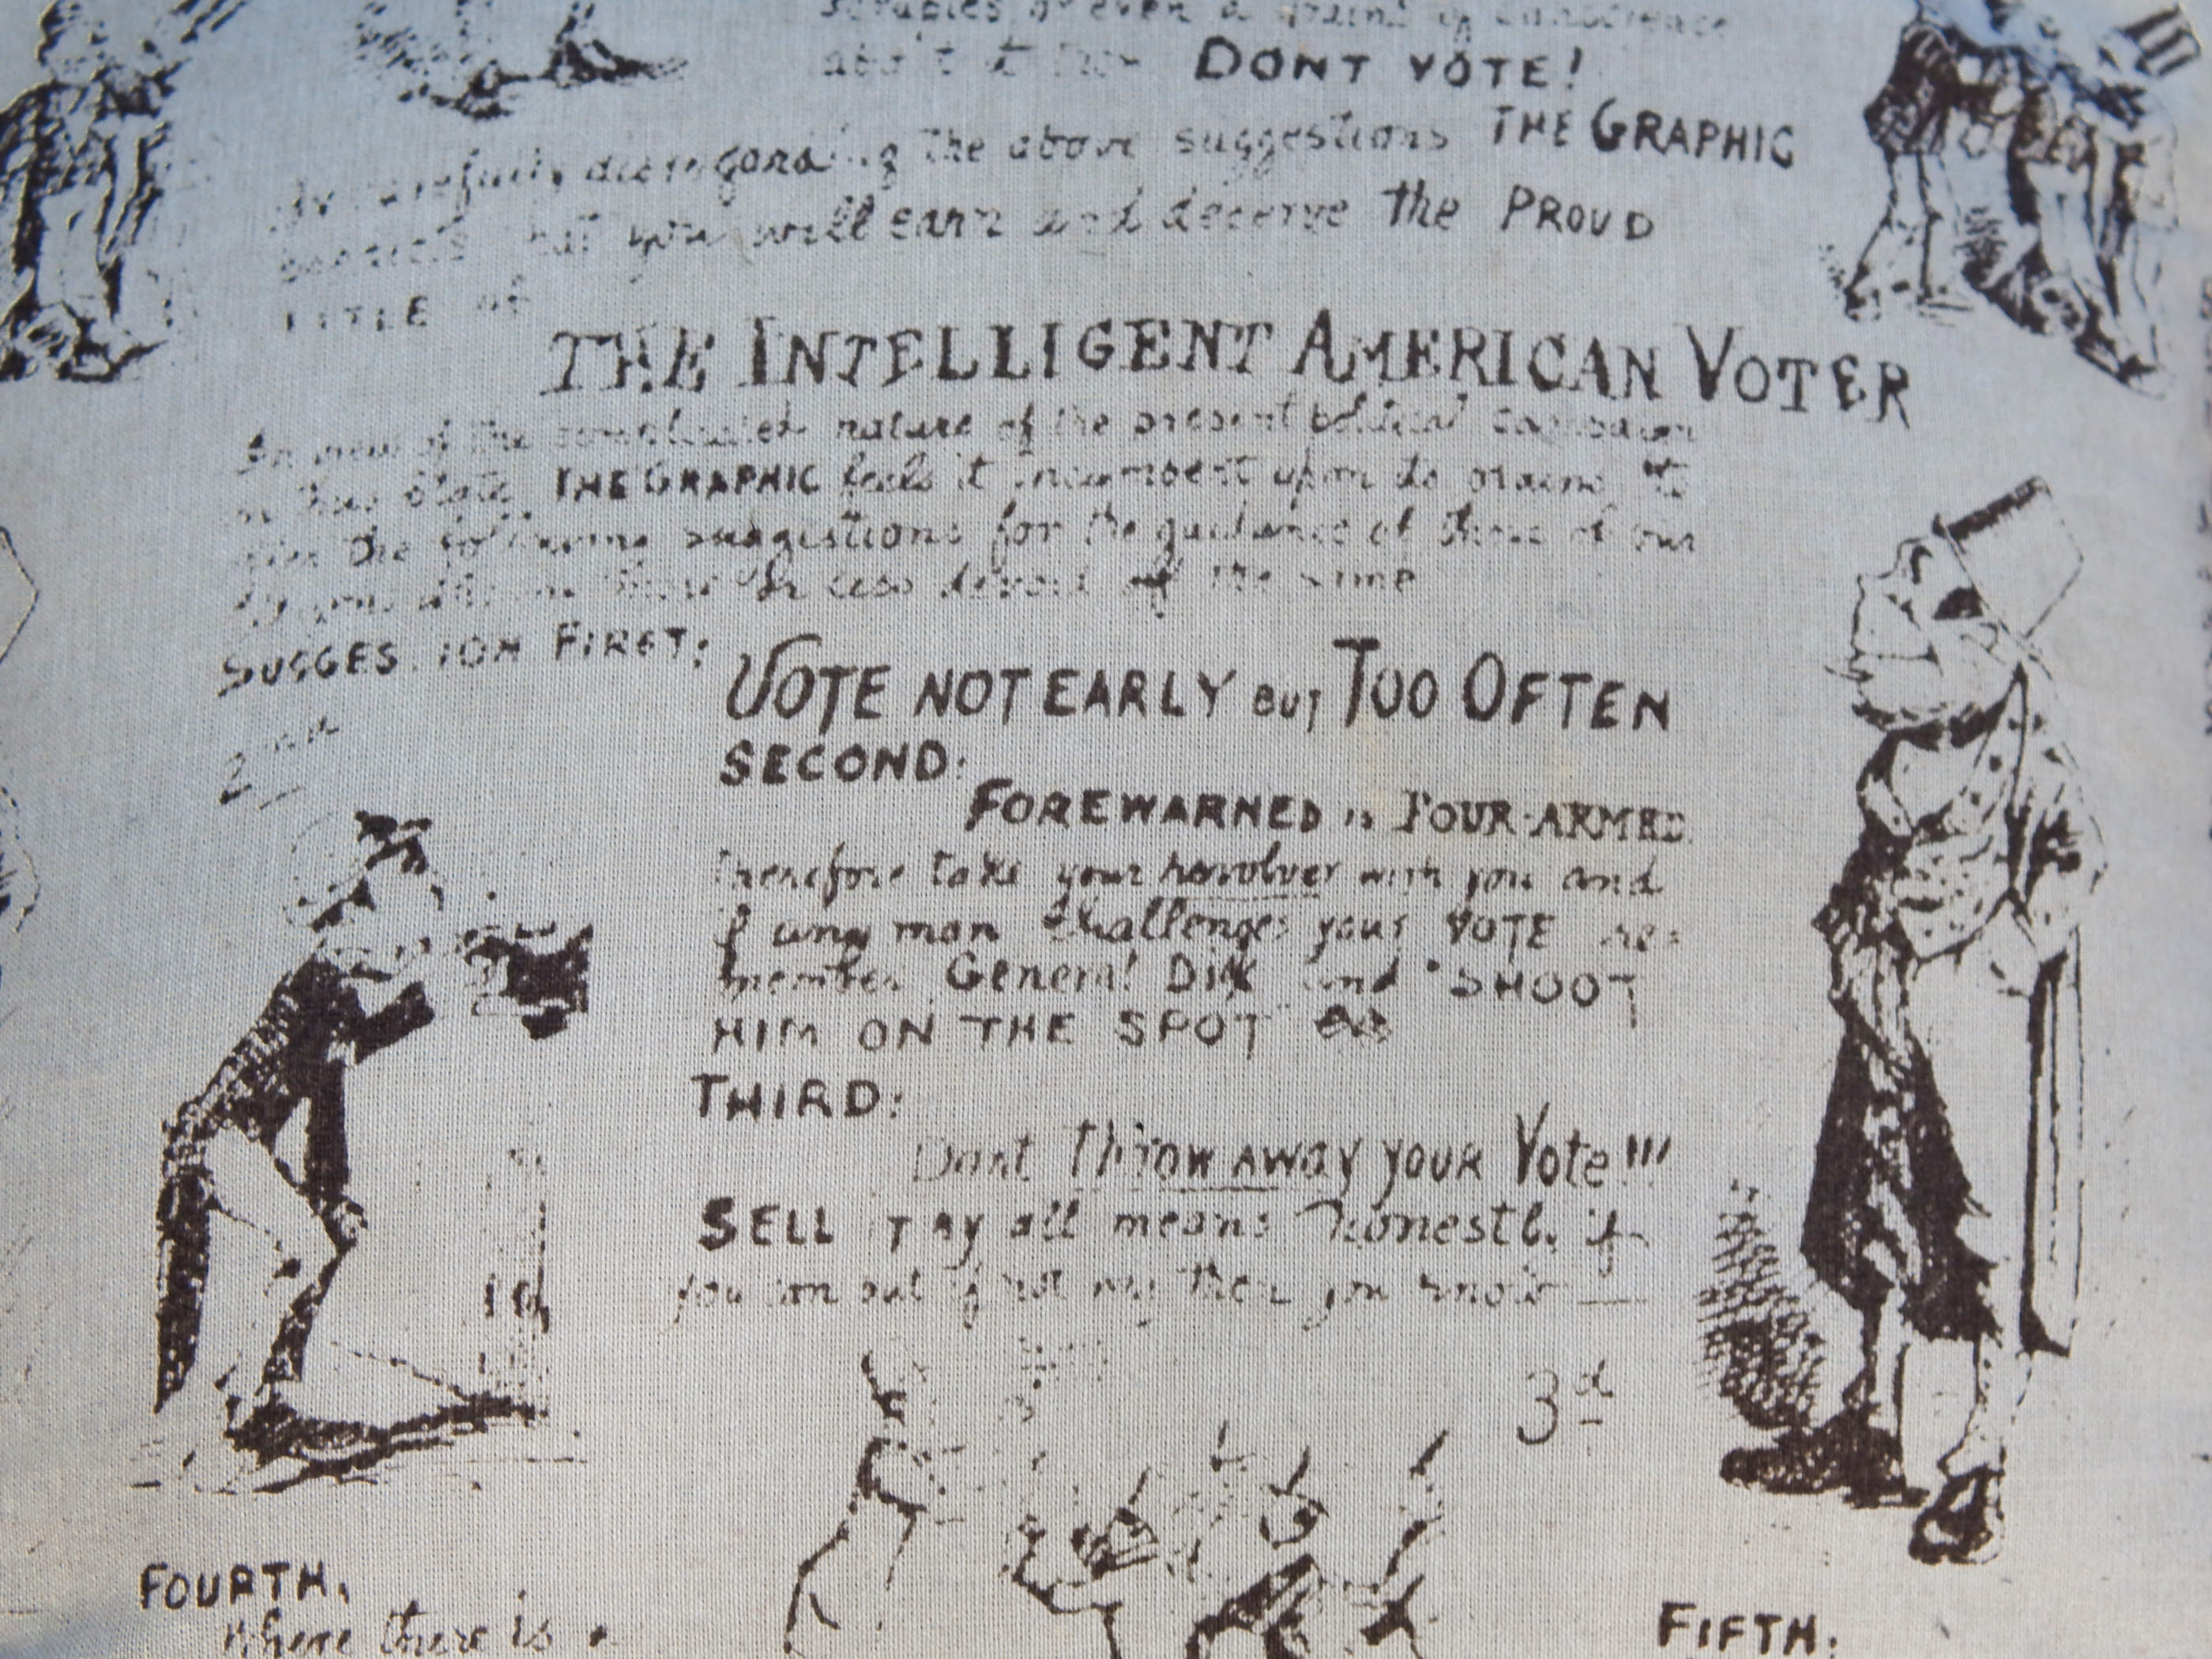 scruples or even a grain of conscience
about it then DONT VOTE!
By carefully disregarding the above suggestions THE GRAPHIC
that you will earn and deserve the PROUD
TITLE of
THE INTELLIGENT AMERICAN VOTER
In view of the complicated nature of the present political campaign
in this State, THE GRAPHIC feels it incumbent upon its brains to
give the following suggestions for the guidance of those of our
more or less devoid of the same
SUGGESTION FIRST:
VOTE NOT EARLY BUT TOO OFTEN
2nd
SECOND:
FOREWARNED is FOUR-ARMED.
Therefore take your revolver with you and
if any man challenges your VOTE re=
member General Dix and "SHOOT
HIM ON THE SPOT"
THIRD:
Dont Throw AWAY YOUR Vote!!!
SELL IT by all means honestly if
you can but if not why then you know —
3d
FOURTH,
Where there is
FIFTH: